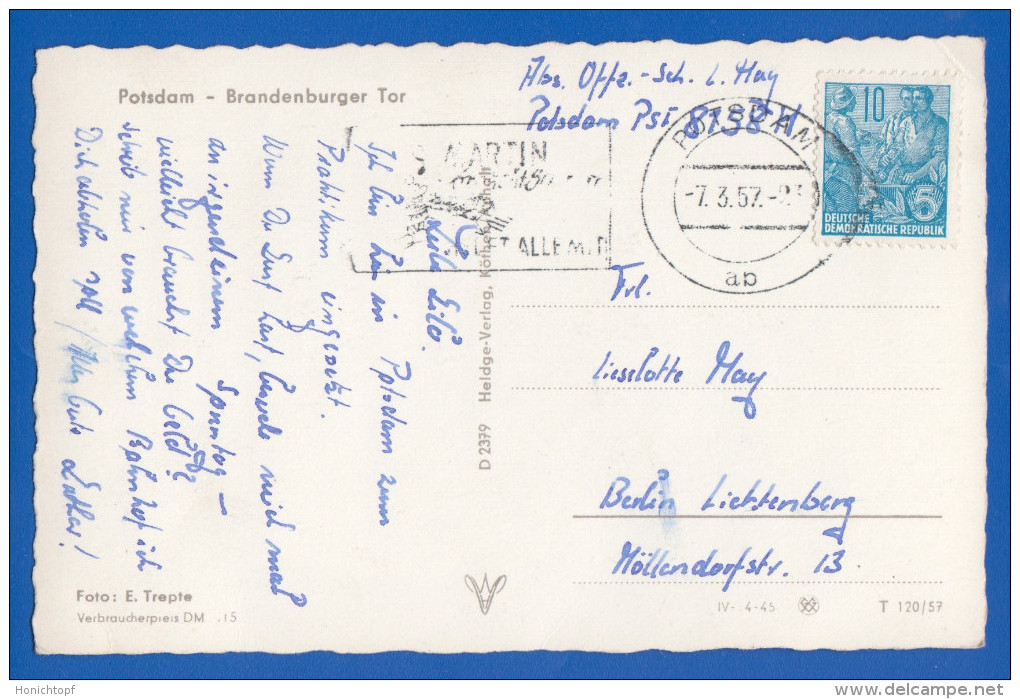 Potsdam – Brandenburger Tor
Abs. Offz.-Sch. L. May
Potsdam PSF 8138 H
MARTIN
ALLE M.D
POTSDAM
-7.3.57.-
ab
10
5
DEUTSCHE
DEMOKRATISCHE REPUBLIK
Liebe Lilo.
Ich bin hier in Potsdam zum
Praktikum eingesetzt.
Wenn Du Lust hast, besuche mich mal
an irgendeinem Sonntag –
vielleicht brauchst Du Geld?
schreib mir von welchem Bahnhof ich
Dich abholen soll / Alles Gute Lothar!
D 2379 Heldge-Verlag, Köthen-Anhalt
Frl.
Lieselotte May
Berlin Lichtenberg
Möllendorfstr. 13
Foto: E. Trepte
Verbraucherpreis DM .15
IV- .4-45
T 120/57
Honichtopf
www.delcampe.net